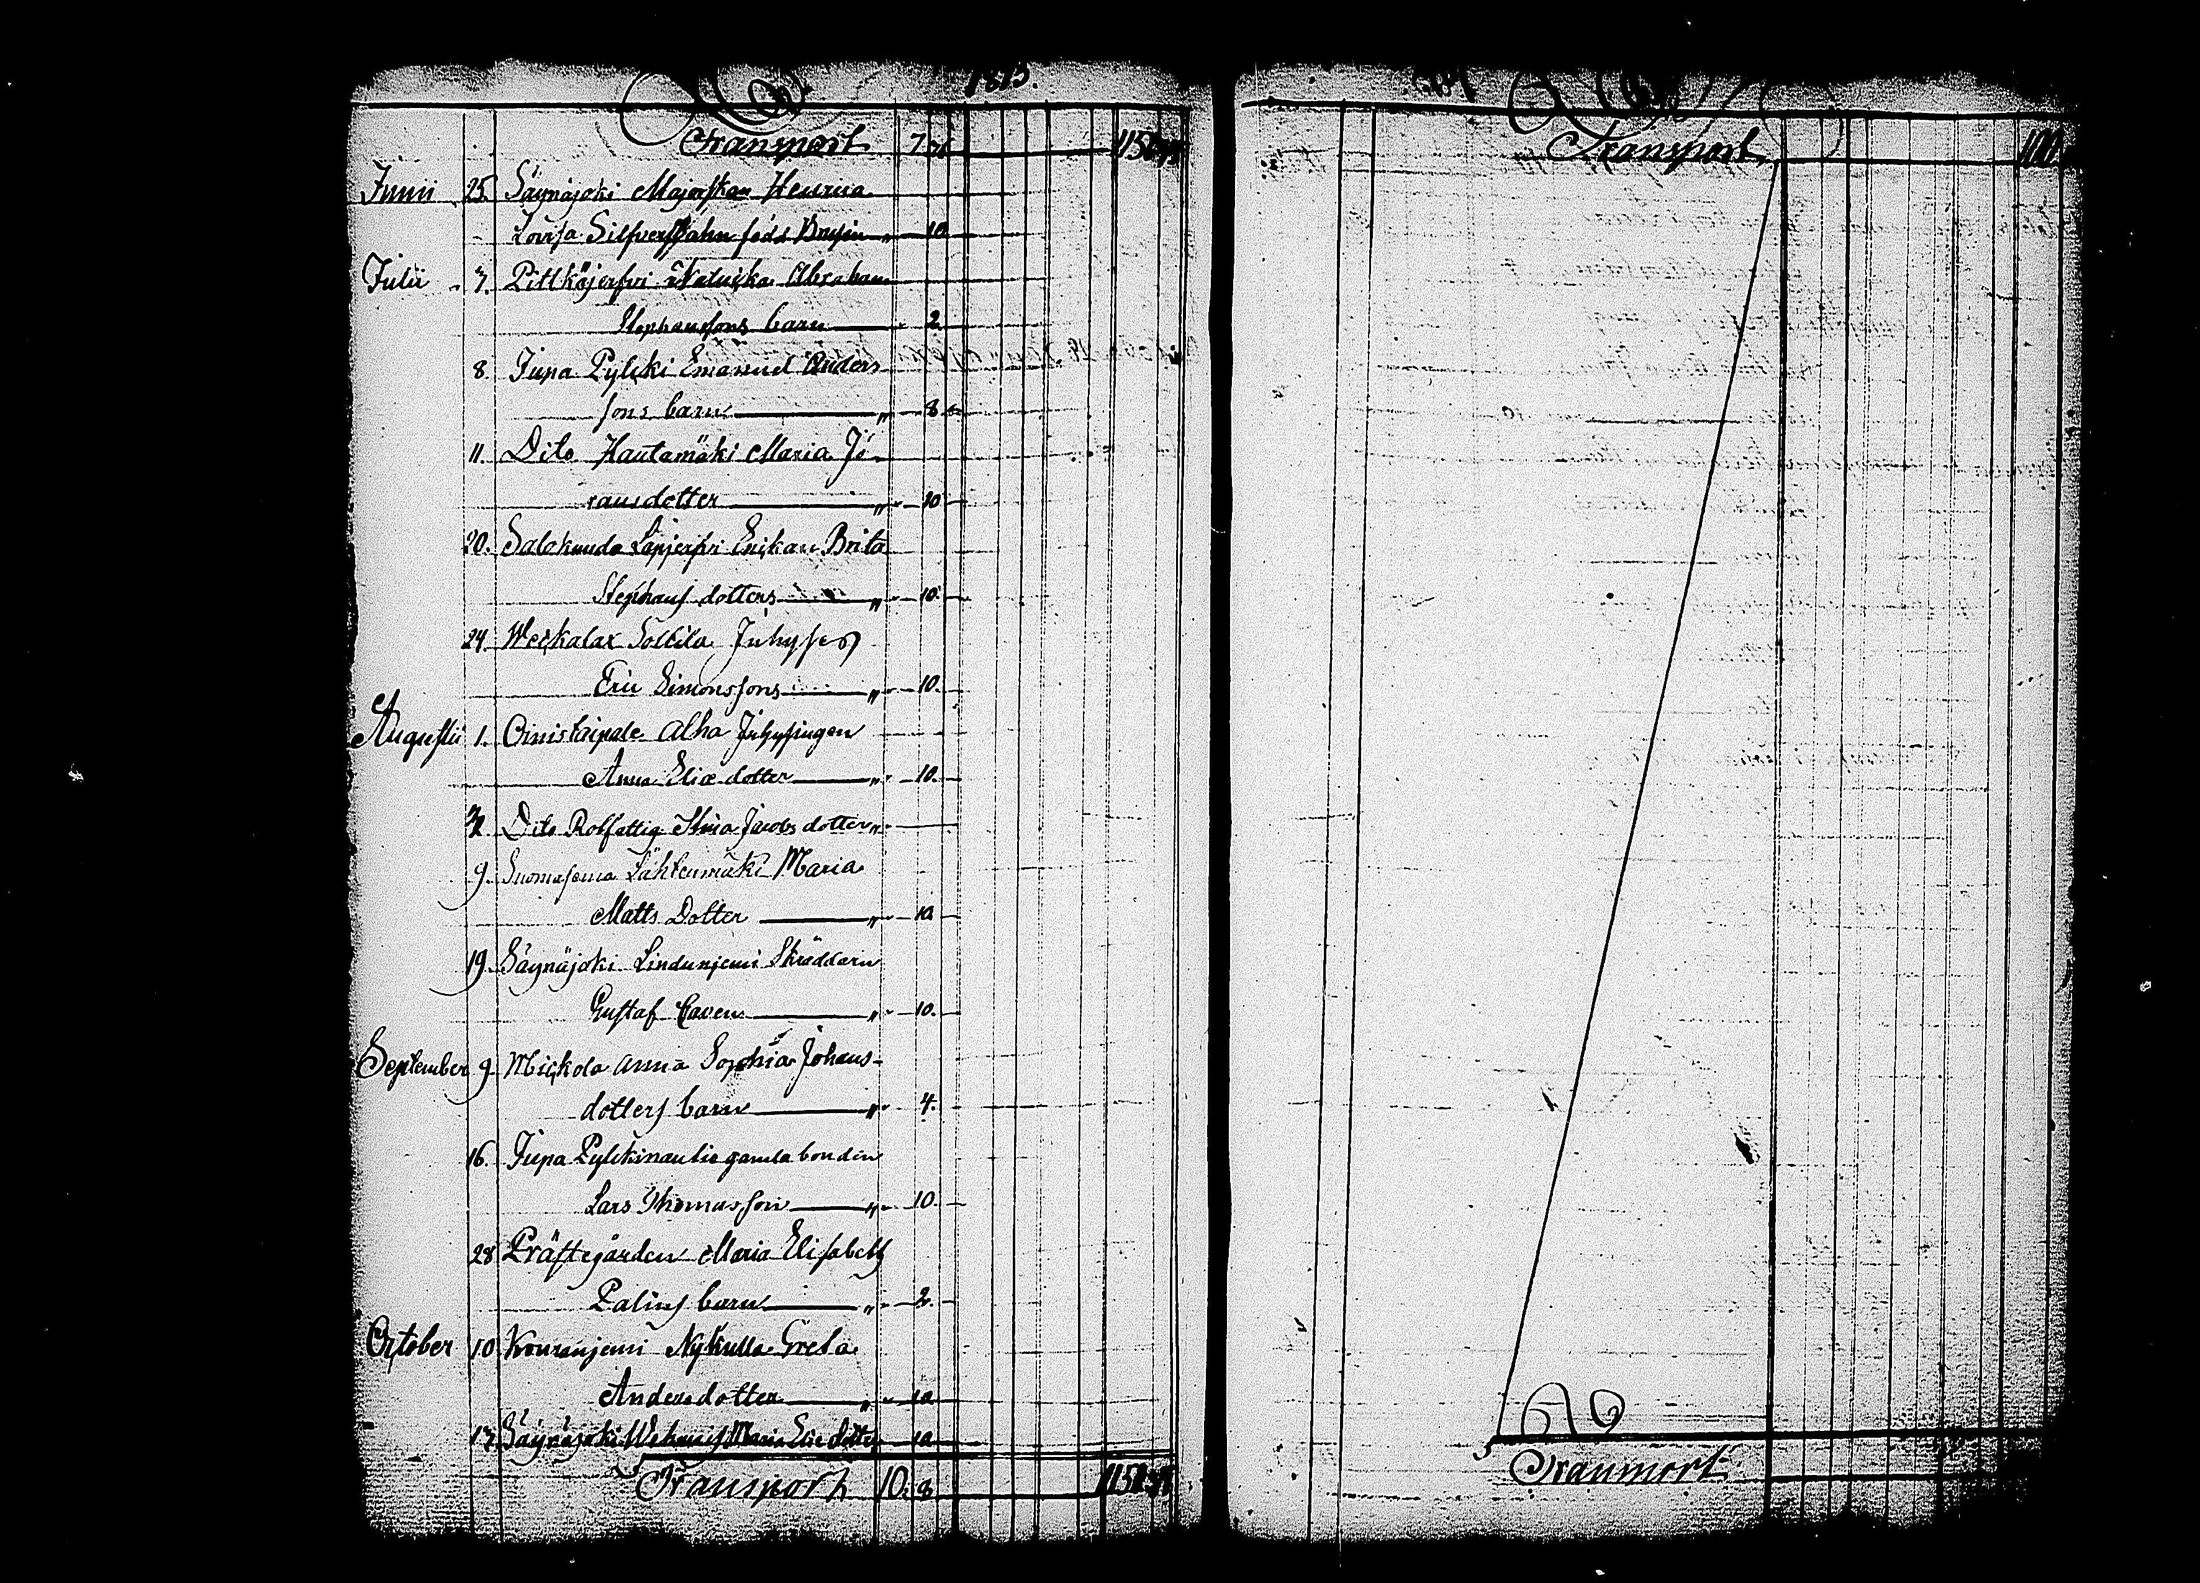 1815.
Transport 7
Junii 25. Säynäjoki Majorskan Henrica
Lovisa Silfverspåhn född Brusin " 10
Julii 7. Pitkäjerfvi Natucka Abraham
Stephanssons barn " 2.
8. Jupa Pylcki Emanuel Anders
sons barn " 8
11. Dito Hautamäki Maria Jö-
ransdotter " 10
20. Salokunda Lapjerfvi Enckan Brita
Stephans dotters " 10.
24. Weskalax Sollila Inhyses
Eric Simonssons " 10.
Augusti 1. Onistaipale Alha Inhysingen
Anna Eliæ dotter " 10.
Dito Rotfattig Stina Jacobs dotter "
9. Suomasema Lähteenmäki Maria
Matts Dotter " 10
19. Säynäjoki Lindunjemi Skräddarn
Gustaf Caven " 10.
September 9. Mickola Anna Sophia Johans-
dotters barn " 4.
16. Jupa Pylckinautio gamla bonden
Lars Thomasson " 10.
28 Prästegården Maria Elisabeth
Palins barn " 2.
October 10 Kouranjemi Nykulla Greta
Andersdotter " 10
17. Säynäjoki Maria Eric dotter 10
Transport 10. 8
Transport
Transport